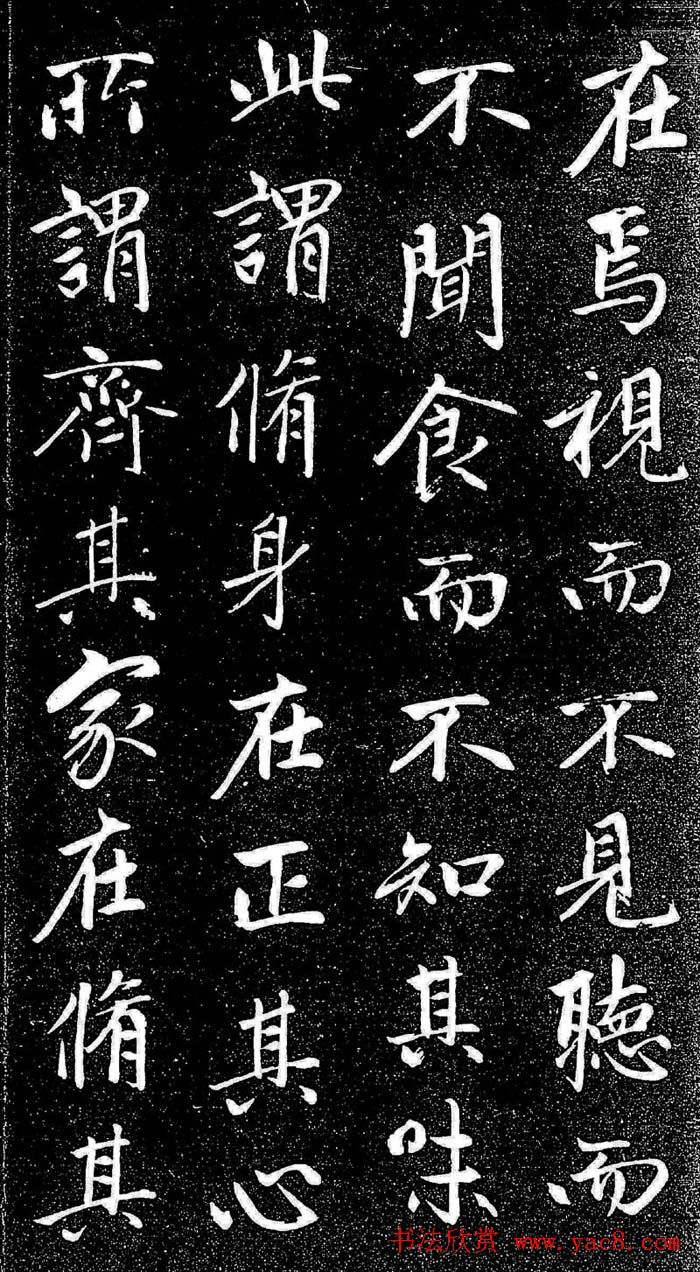 在焉視而不見聽而
不聞食而不知其味
此謂脩身在正其心
所謂齊其家在脩其
书法欣赏 www.yac8.com